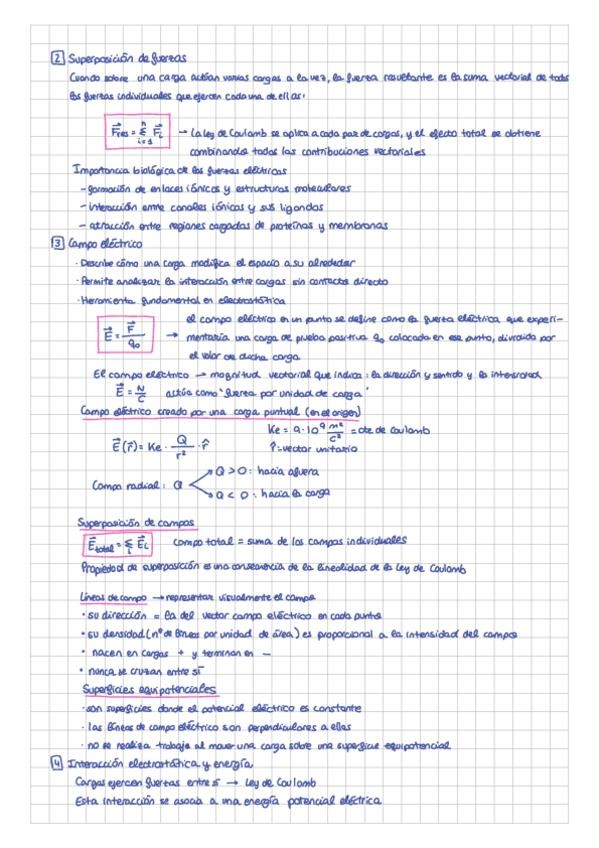 2 Superposición de fuerzas
Cuando sobre una carga actúan varias cargas a la vez, la fuerza resultante es la suma vectorial de todas
las fuerzas individuales que ejercen cada una de ellas:
F⃗res = Σ(i=1→n) F⃗i → La ley de Coulomb se aplica a cada par de cargas, y el efecto total se obtiene
combinando todas las contribuciones vectoriales
Importancia biológica de las fuerzas eléctricas
- formación de enlaces iónicos y estructuras moleculares
- interacción entre canales iónicos y sus ligandos
- atracción entre regiones cargadas de proteínas y membranas
3 Campo eléctrico
· Describe cómo una carga modifica el espacio a su alrededor
· Permite analizar la interacción entre cargas sin contacto directo
· Herramienta fundamental en electrostática
E⃗ = F⃗/q₀ → el campo eléctrico en un punto se define como la fuerza eléctrica que experi-
mentaría una carga de prueba positiva q₀ colocada en ese punto, dividida por
el valor de dicha carga
El campo eléctrico → magnitud vectorial que indica: la dirección y sentido y la intensidad
E⃗ = N/C actúa como "fuerza por unidad de carga"
Campo eléctrico creado por una carga puntual (en el origen)
E⃗(r⃗) = Ke · Q/r² · r̂ Ke = 9·10⁹ m²/C² = cte de Coulomb
r̂ = vector unitario
Campo radial: Q
Q > 0: hacia afuera
Q < 0: hacia la carga
Superposición de campos
E⃗total = Σi E⃗i campo total = suma de los campos individuales
Propiedad de superposición es una consecuencia de la linealidad de la Ley de Coulomb
Líneas de campo → representar visualmente el campo
· su dirección = la del vector campo eléctrico en cada punto
· su densidad (nº de líneas por unidad de área) es proporcional a la intensidad del campo
· nacen en cargas + y terminan en -
· nunca se cruzan entre sí
Superficies equipotenciales
· son superficies donde el potencial eléctrico es constante
· las líneas de campo eléctrico son perpendiculares a ellas
· no se realiza trabajo al mover una carga sobre una superficie equipotencial
4 Interacción electrostática y energía
Cargas ejercen fuerzas entre sí → Ley de Coulomb
Esta interacción se asocia a una energía potencial eléctrica